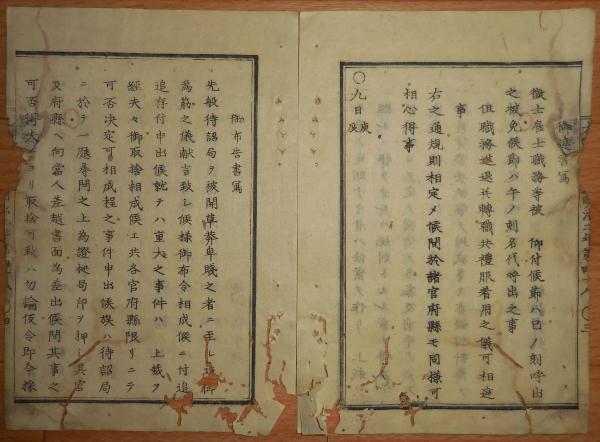 御達書寫
徴士雇士職務等被 仰付候節ハ巳ノ刻呼出
之被免候節ハ午ノ刻名代呼出之事
但職務進退并轉職共禮服着用之儀可相達
事
右之通規則相定メ候間於諸官府縣モ同樣可
相心得事
〇九日庚辰
御布告書寫
先般待詔局ヲ被開草莽卑賤之者ニ至ル迄御
為筋之儀献言致し候樣御布令相成候ニ付追
追存付申出候就テハ重大之事件ハ 上裁ヲ
經夫々御取捨相成候ヱ共各官府縣限リニテ
可否決定可相成程之事件申出候族ハ待詔局
ニ於テ一應尋問之上為證據局印ヲ押し其官
及府縣ヘ向當人差越書面為差出候間其事之
可否得失ニヨリ取捨可致ハ勿論假令即今採